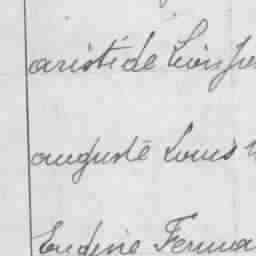 aristide Léon
auguste Louis
Eugène Ferna